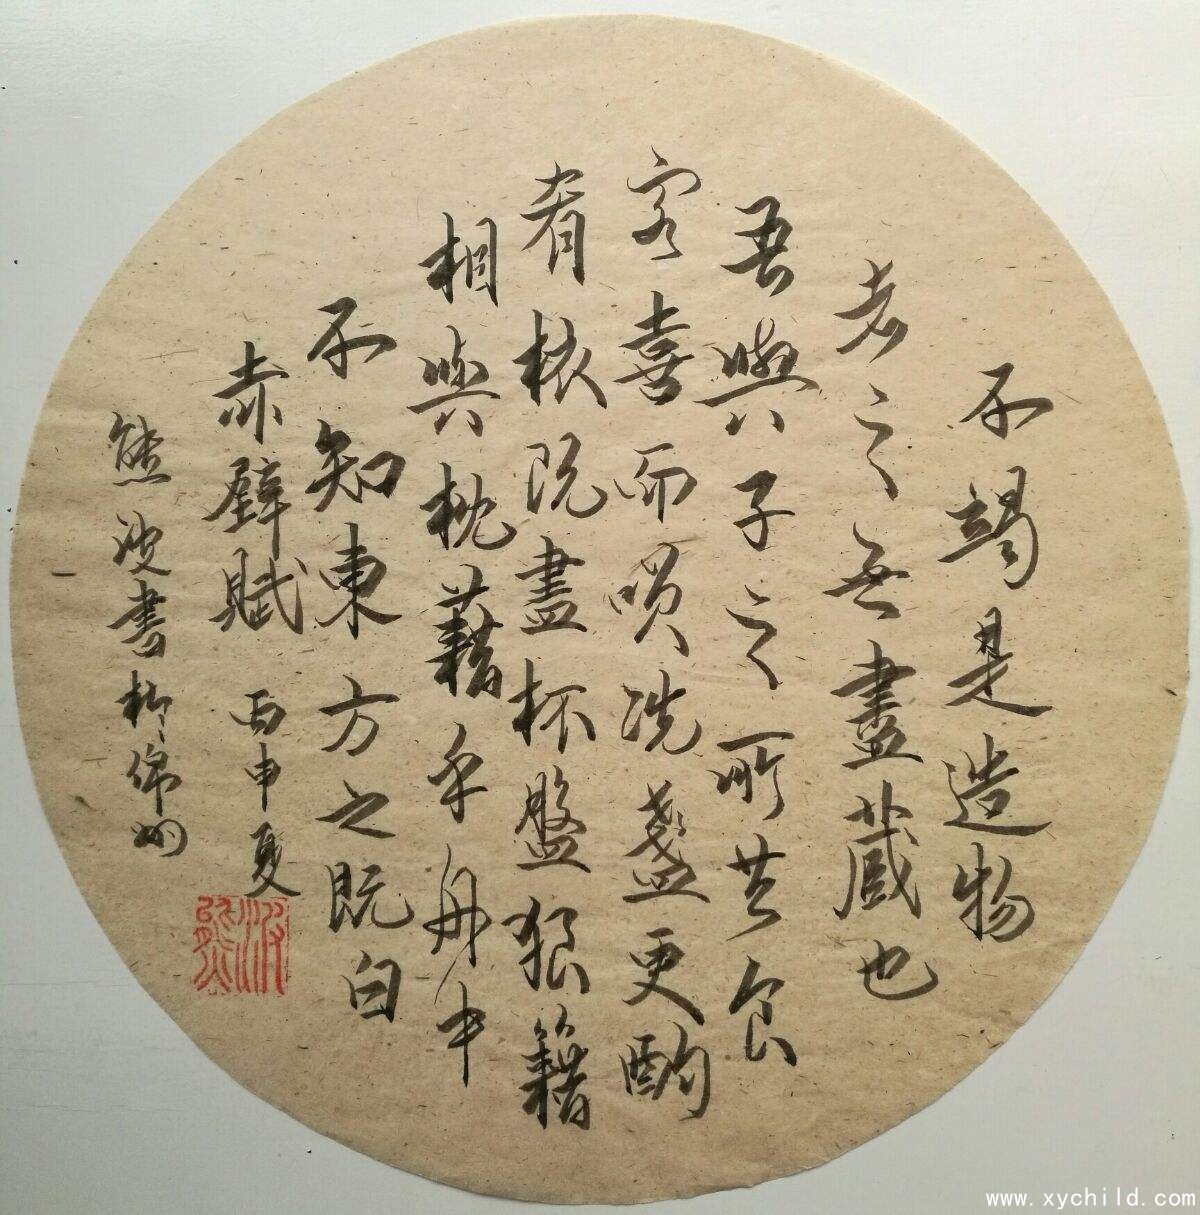 不竭是造物
者之無盡藏也
吾與子之所共食
客喜而咲洗盞更酌
肴核既盡杯盤狼籍
相與枕藉乎舟中
不知東方之既白
赤壁賦 丙申夏
熊波書於綿州
www.xychild.com